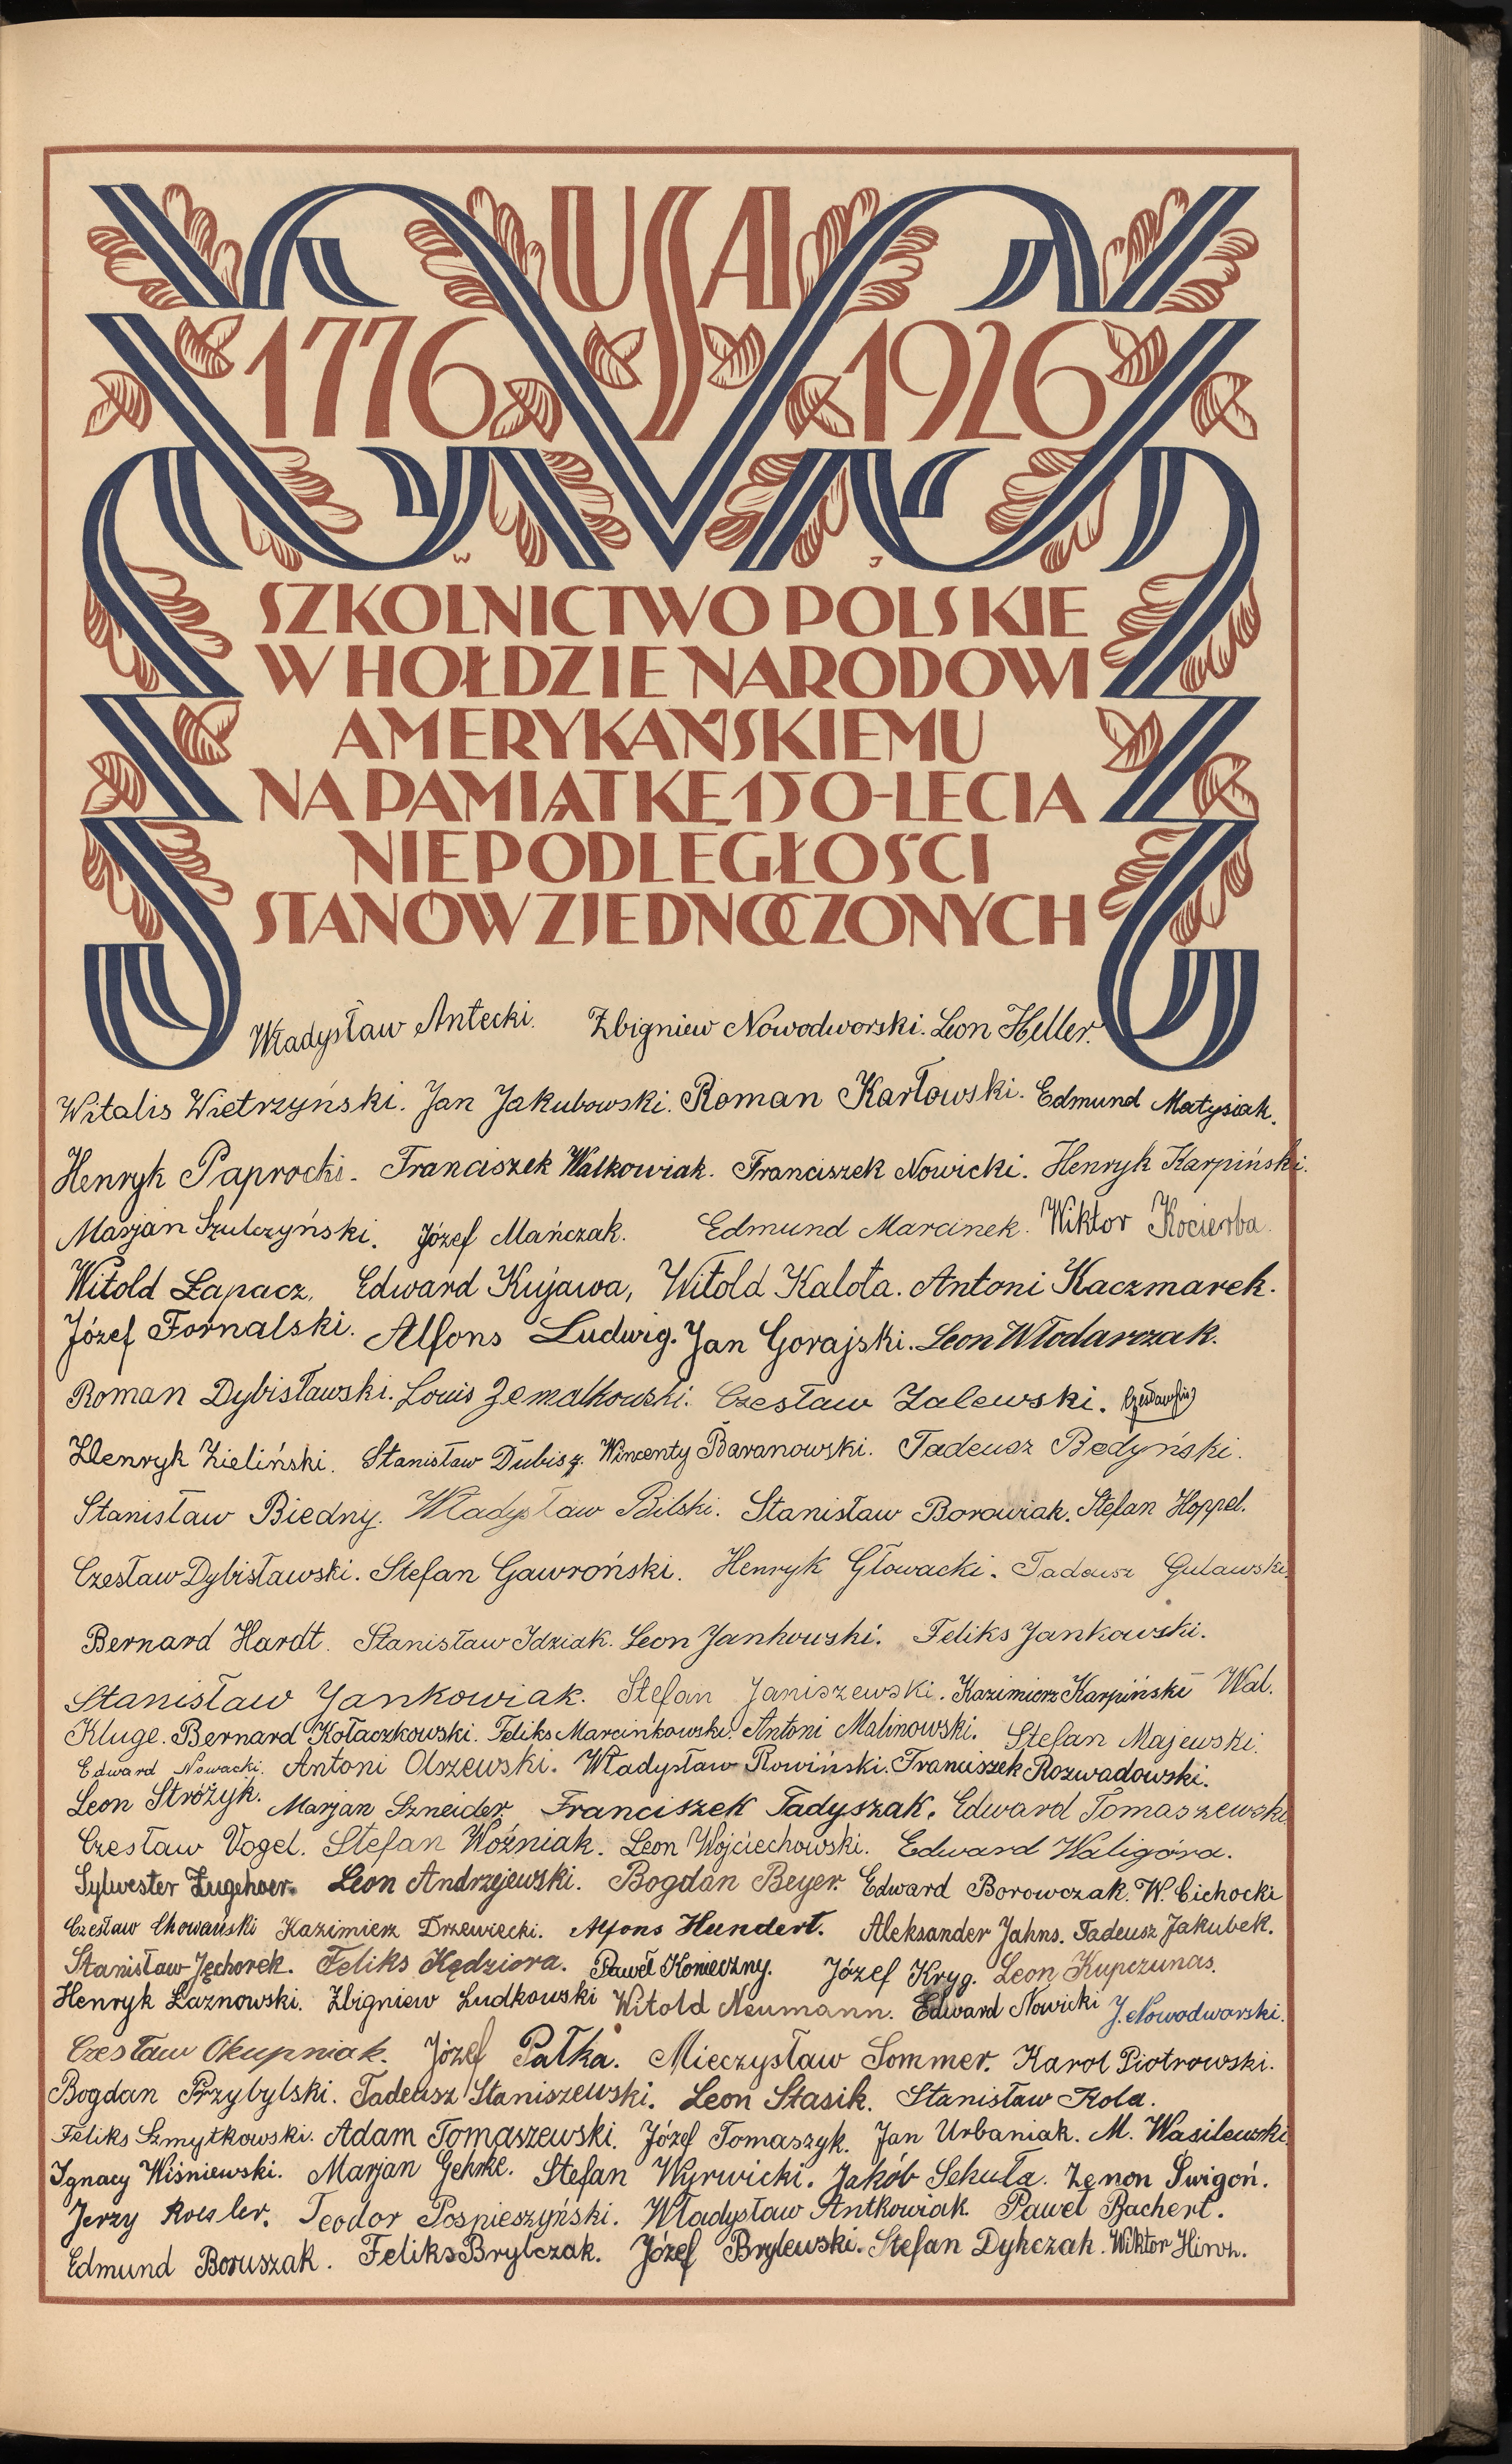 USA
1776 1926
W J
SZKOLNICTWO POLSKIE
W HOŁDZIE NARODOWI
AMERYKAŃSKIEMU
NA PAMIĄTKĘ 150-LECIA
NIEPODLEGŁOŚCI
STANÓW ZJEDNOCZONYCH
Władysław Antecki. Zbigniew Nowodworski. Leon Heller.
Witalis Wietrzyński. Jan Jakubowski. Roman Karłowski. Edmund Matysiak.
Henryk Paprocki. Franciszek Walkowiak. Franciszek Nowicki. Henryk Karpiński.
Marjan Szulczyński. Józef Mańczak. Edmund Marcinek. Wiktor Kocierba.
Witold Łapacz. Edward Kujawa, Witold Kalota. Antoni Kaczmarek.
Józef Fornalski. Alfons Ludwig. Jan Gorajski. Leon Włodarczak.
Roman Dybisławski. Louis Zemalkowski. Czesław Zalewski.
Henryk Zieliński. Stanisław Dubisz. Wincenty Baranowski. Tadeusz Bedyński.
Stanisław Biedny. Władysław Bilski. Stanisław Borowiak. Stefan Hoppel.
Czesław Dybisławski. Stefan Gawroński. Henryk Głowacki. Tadeusz Gulawski.
Bernard Hardt. Stanisław Idziak. Leon Jankowski. Feliks Jankowski.
Stanisław Jankowiak. Stefan Janiszewski. Kazimierz Karpiński Wal.
Kluge. Bernard Kołaczkowski. Feliks Marcinkowski. Antoni Malinowski. Stefan Majewski.
Edward Nowacki. Antoni Olszewski. Władysław Rowiński. Franciszek Rozwadowski.
Leon Stróżyk. Marjan Szneider. Franciszek Tadyszak. Edward Tomaszewski
Czesław Vogel. Stefan Woźniak. Leon Wojciechowski. Edward Waligóra.
Sylwester Zugehoer. Leon Andrzejewski. Bogdan Beyer. Edward Borowczak. W. Cichocki
Czesław Chowański Kazimierz Drzewiecki. Alfons Hundert. Aleksander Jahns. Tadeusz Jakubek.
Stanisław Jęchorek. Feliks Kędziora. Paweł Konieczny. Józef Kryg. Leon Kupczunas.
Henryk Łaznowski. Zbigniew Ludkowski Witold Neumann. Edward Nowicki J. Nowodworski.
Czesław Okupniak. Józef Pałka. Mieczysław Sommer. Karol Piotrowski.
Bogdan Przybylski. Tadeusz Staniszewski. Leon Stasik. Stanisław Kola.
Feliks Szmytkowski. Adam Tomaszewski. Józef Tomaszyk. Jan Urbaniak. M. Wasilewski
Ignacy Wiśniewski. Marjan Gehrke. Stefan Wyrwicki. Jakób Sekuła. Zenon Świgoń.
Jerzy Roesler. Teodor Pospieszyński. Władysław Antkowiak. Paweł Bachert.
Edmund Boruszak. Feliks Brylczak. Józef Brylewski. Stefan Dykczak. Wiktor